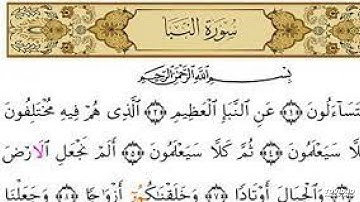 سُورَةُ النَّبَإِ
بِسْمِ اللَّهِ الرَّحْمَٰنِ الرَّحِيمِ
تَسَاءَلُونَ ﴿١﴾ عَنِ النَّبَإِ الْعَظِيمِ ﴿٢﴾ الَّذِي هُمْ فِيهِ مُخْتَلِفُونَ
لَّا سَيَعْلَمُونَ ﴿٤﴾ ثُمَّ كَلَّا سَيَعْلَمُونَ ﴿٥﴾ أَلَمْ نَجْعَلِ الْأَرْضَ
وَالْجِبَالَ أَوْتَادًا ﴿٧﴾ وَخَلَقْنَاكُمْ أَزْوَاجًا ﴿٨﴾ وَجَعَلْنَا